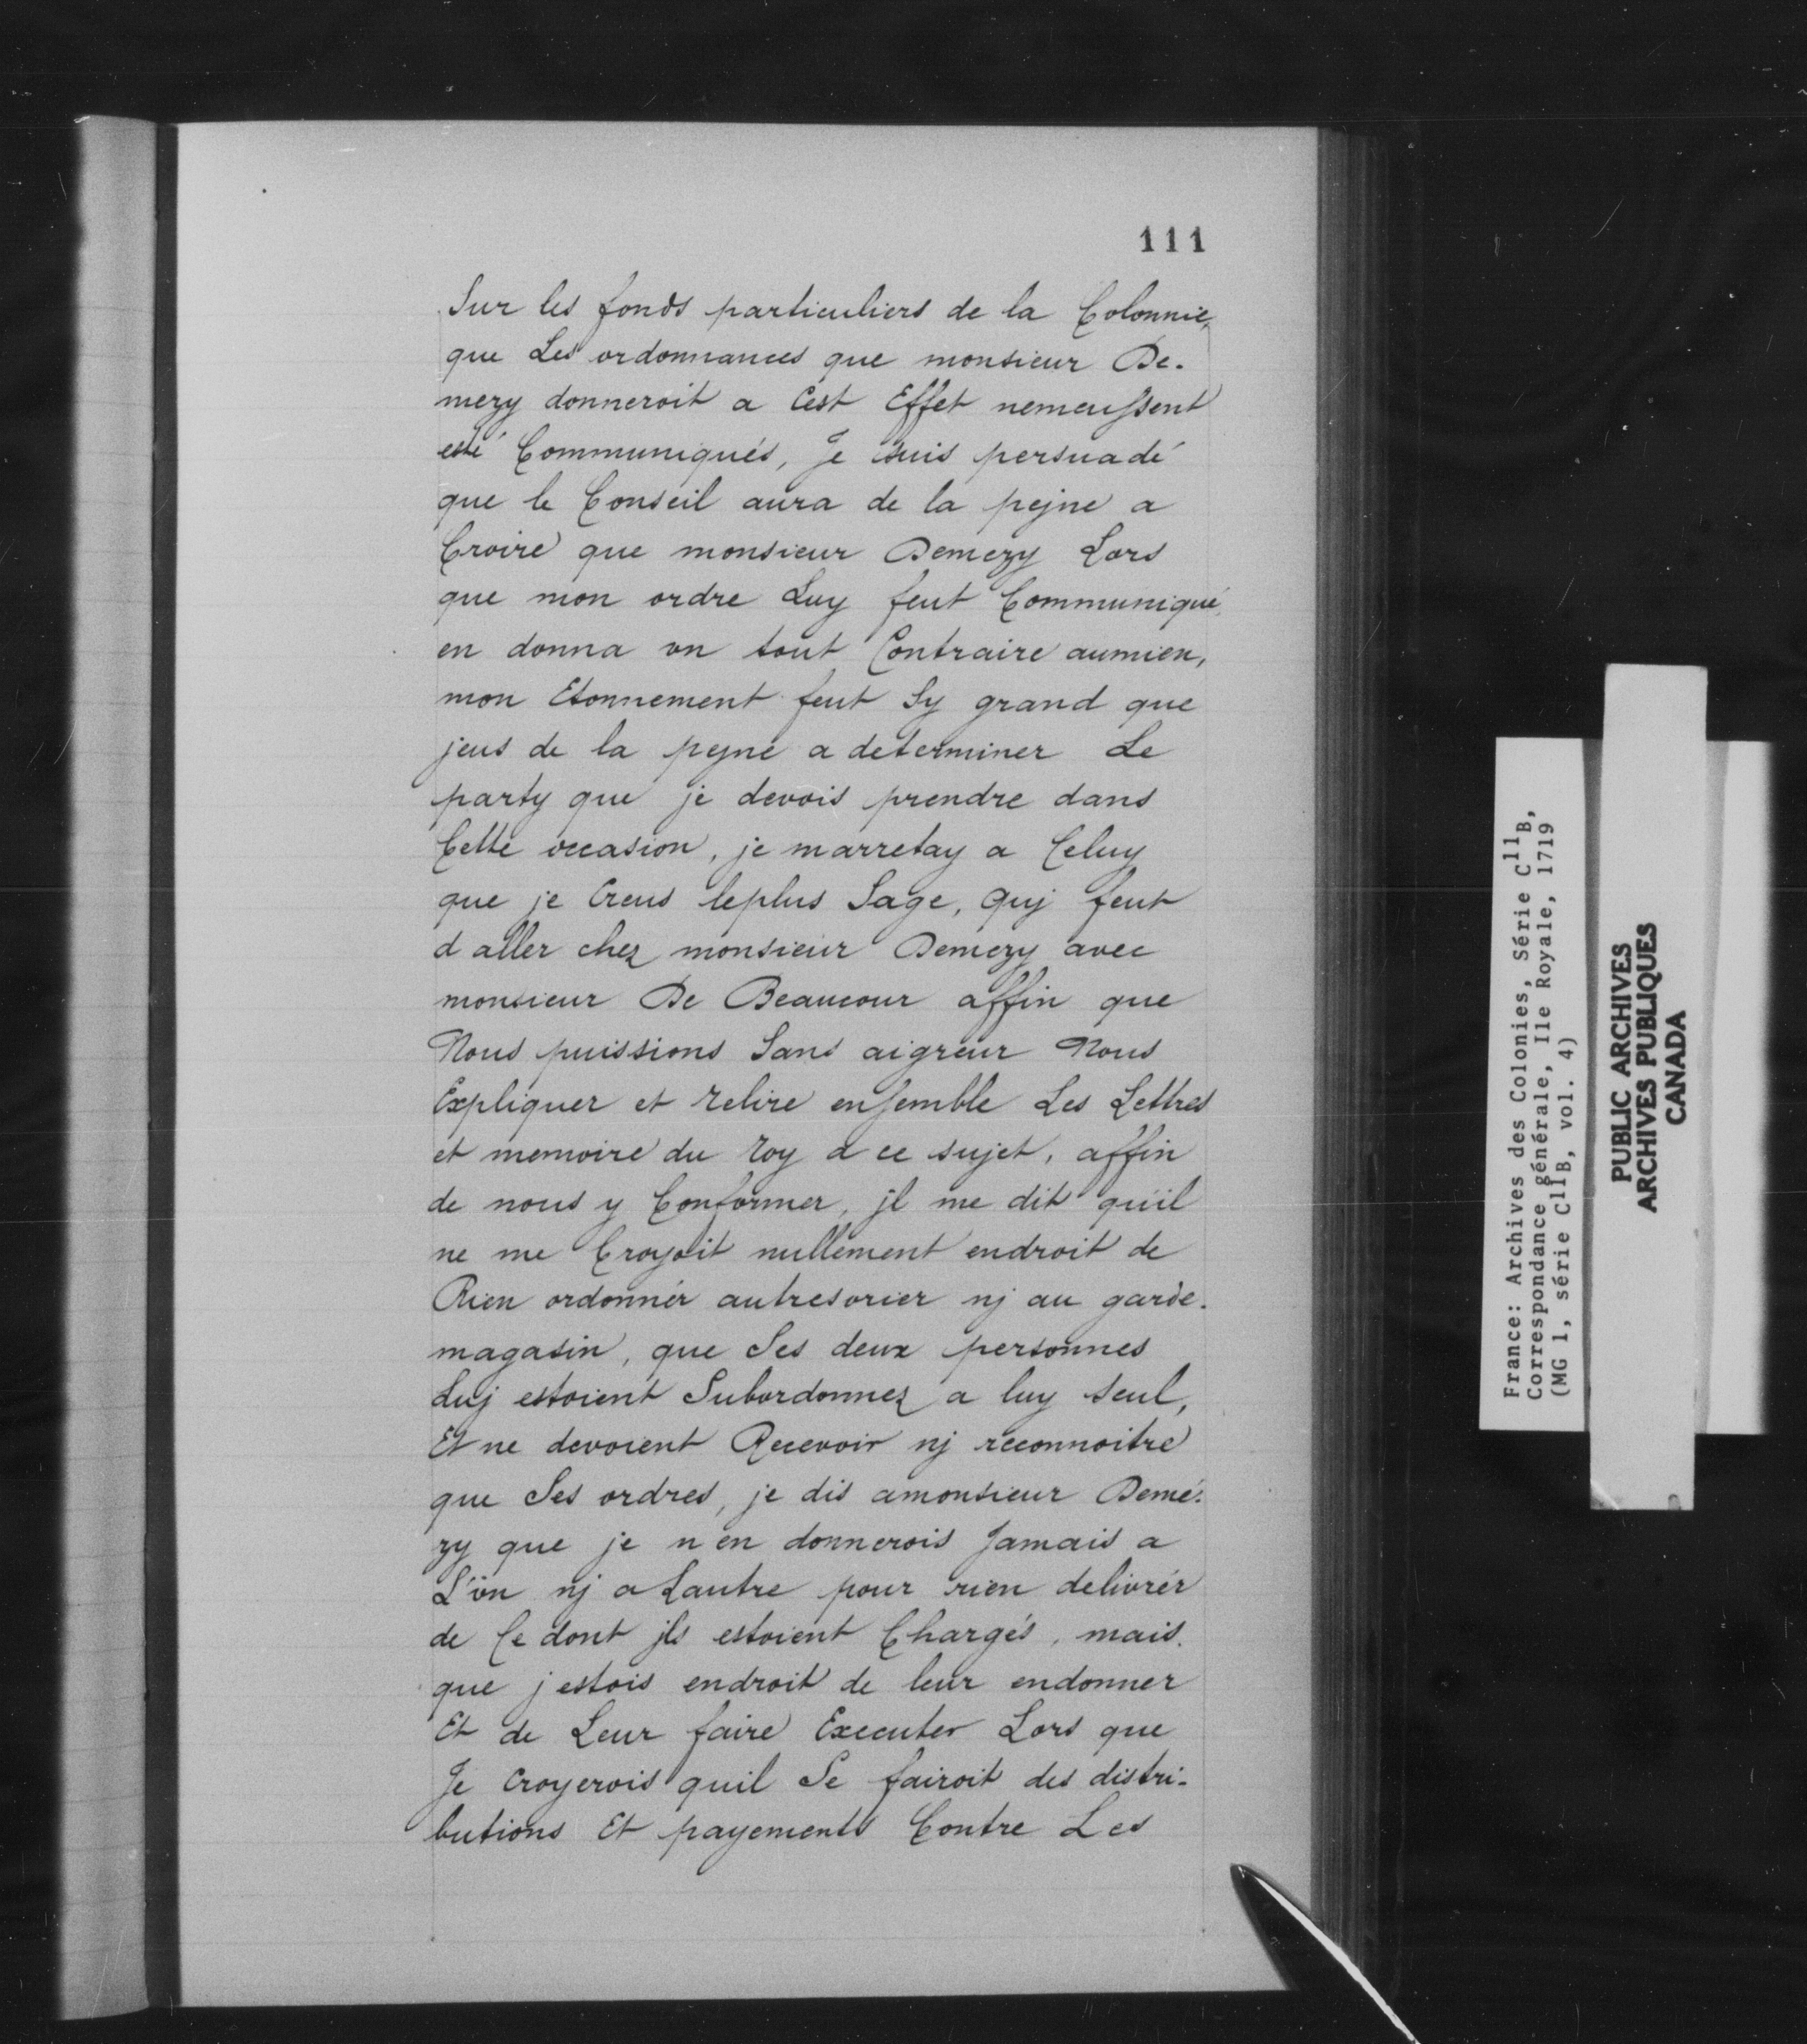 111
Sur les fonds particuliers de la Colonnie,
que Les ordonnances que monsieur De-
mezy donneroit a Cest Effet nemeussent
esté Communiqués, Je suis persuadé
que le Conseil aura de la pejne a
Croire que monsieur Demezy Lors
que mon ordre Luy feut Communiqué,
en donna un tout Contraire aumien,
mon Etonnement feut Sy grand que
jeus de la pejne a determiner Le
party que je devois prendre dans
Cette occasion, je marretay a Celuy
que je Creus leplus Sage, quj feut
d aller chez monsieur Demezy avec
monsieur De Beaucour affin que
Nous puissions Sans aigreur Nous
Expliquer et relire ensemble Les Lettres
et memoire du roy a ce sujet, affin
de nous y Conformer, jl me dit qu'il
ne me Croyoit nullement endroit de
Rien ordonner autresorier nj au garde-
magasin, que Ses deux personnes
Luj estoient Subordonnez a luy seul,
Et ne devoient Recevoir nj reconnoitre
que Ses ordres, je dis amonsieur Deme-
zy que je n en donnerois Jamais a
L'ün nj a Lautre pour rien delivrér
de Ce dont jls estoient Chargés, mais
que j estois endroit de leur endonner
Et de Leur faire Executer Lors que
Je croyerois quil Se fairoit des distri-
butions Et payements Contre Les
France: Archives des Colonies, Série C11B,
Correspondance générale, Ile Royale, 1719
(MG 1, série C11B, vol. 4)
PUBLIC ARCHIVES
ARCHIVES PUBLIQUES
CANADA